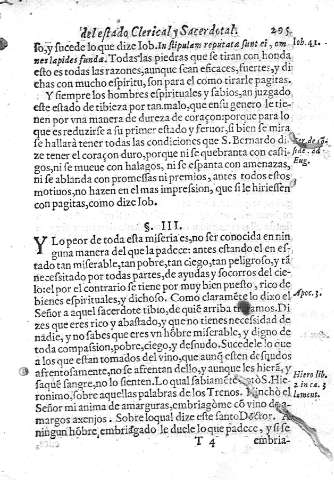 del estado Clerical y Sacerdotal. 295
so, y sucede lo que dize Iob. In stipulam reputatæ sunt ei, om Iob. 41.
nes lapides fundæ. Todas las piedras que se tiran con honda
esto es todas las razones, aunque sean eficaces, fuertes, y di
chas con mucho espiritu, son para el como tirarle pagitas.
Y siempre los hombres espirituales y sabios, an juzgado
este estado de tibieza por tan malo, que en su genero le tie-
nen por vna manera de dureza de coraçon: porque para lo
que es reduzirse a su primer estado y feruor, si bien se mira
se hallarà tener todas las condiciones que S. Bernardo di-
ze tener el coraçon duro, porque ni se quebranta con casti-
gos, ni se mueue con halagos, ni se espanta con amenazas, Eug.
ni se ablanda con promessas ni premios, antes todos estos
motiuos, no hazen en el mas impression, que si le hiriessen
con pagitas, como dize Iob.
§. III.
Y Lo peor de toda esta miseria es, no ser conocida en nin
guna manera del que la padece: antes estando el en es-
tado tan miserable, tan pobre, tan ciego, tan peligroso, y tã
necessitado por todas partes, de ayudas y socorros del cie-
lo: el por el contrario se tiene por muy bien puesto, rico de
bienes espirituales, y dichoso. Como claramẽte lo dixo el Apoc. 3.
Señor a aquel sacerdote tibio, de quiẽ arriba amos. Di
zes que eres rico y abastado, y que no tienes necessidad de
nadie, y no sabes que eres vn hõbre miserable, y digno de
toda compasion, pobre, ciego, y desnudo. Sucedele lo que
a los que estan tomados del vino, que aunq̃ esten desnudos
afrentosamente, no se afrentan dello, y aunque les hierã, y
saquẽ sangre, no lo sienten. Lo qual sabiamẽte S. Hie- Hiero lib.
ronimo, sobre aquellas palabras de los Trenos. Hinchò el 2 in ca. 3
Señor mi anima de amarguras, embriagòme cõ vino de a- lament.
margos axenjos. Sobre lo qual dize este santo Dotor. A
ningun hõbre embriagado le duele lo que padece, y si se
T 4 embria-